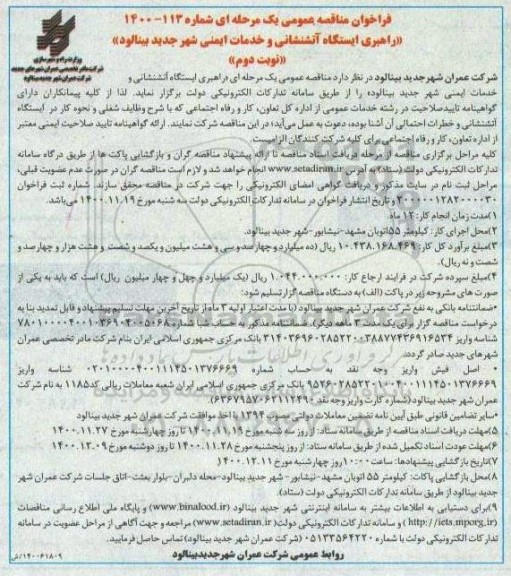 فراخوان مناقصه عمومی یک مرحله ای شماره ۱۱۳-۱۴۰۰
«راهبری ایستگاه آتشنشانی و خدمات ایمنی شهر جدید بینالود»
«نوبت دوم»
وزارت راه و شهرسازی
شرکت مادر تخصصی عمران شهرهای جدید
شرکت عمران شهر جدید بینالود
شرکت عمران شهر جدید بینالود در نظر دارد مناقصه عمومی یک مرحله ای «راهبری ایستگاه آتشنشانی و
خدمات ایمنی شهر جدید بینالود» را از طریق سامانه تدارکات الکترونیکی دولت برگزار نماید. لذا از کلیه پیمانکاران دارای
گواهینامه تایید صلاحیت در رشته خدمات عمومی از اداره کل تعاون، کار و رفاه اجتماعی که با شرح وظایف شغلی و نحوه کار در ایستگاه
آتشنشانی و خطرات احتمالی آن آشنا بوده، دعوت به عمل می‌آید؛ در این مناقصه شرکت نمایند. ارائه گواهینامه تایید صلاحیت ایمنی معتبر
از اداره تعاون، کار و رفاه اجتماعی برای کلیه شرکت کنندگان الزامیست.
کلیه مراحل برگزاری مناقصه از مرحله دریافت اسناد مناقصه تا ارائه پیشنهاد مناقصه گران و بازگشایی پاکت ها از طریق درگاه سامانه
تدارکات الکترونیکی دولت (ستاد) به آدرس www.setadiran.ir انجام خواهد شد و لازم است مناقصه گران در صورت عدم عضویت قبلی،
مراحل ثبت نام در سایت مذکور و دریافت گواهی امضای الکترونیکی را جهت شرکت در مناقصه محقق سازند. شماره ثبت فراخوان
۲۰۰۰۰۰۱۲۸۲۰۰۰۰۳۰ و تاریخ انتشار فراخوان در سامانه تدارکات الکترونیکی دولت سه شنبه مورخ ۱۴۰۰.۱۱.۱۹ می‌باشد.
۱)مدت زمان انجام کار: ۱۲ ماه
۲)محل اجرای کار: کیلومتر ۵۵ اتوبان مشهد-نیشابور-شهر جدید بینالود.
۳)مبلغ برآورد کل کار: ۱۰.۴۳۸.۱۶۸.۴۶۹ ریال (ده میلیارد و چهارصد و سی و هشت میلیون و یکصد و شصت و هشت هزار و چهارصد و
شصت و نه ریال).
۴)مبلغ سپرده شرکت در فرایند ارجاع کار: ۱.۰۴۴.۰۰۰.۰۰۰ ریال (یک میلیارد و چهل و چهار میلیون ریال) است که باید به یکی از
صورت های مشروحه زیر در پاکت (الف) به دستگاه مناقصه گزار تسلیم شود:
•ضمانتنامه بانکی به نفع شرکت عمران شهر جدید بینالود (با مدت اعتبار اولیه ۳ ماه از تاریخ آخرین مهلت تسلیم پیشنهاد و قابل تمدید بنا به
درخواست مناقصه گزار برای یک مدت ۳ ماهه دیگر).
شهرهای جدید صادر گردد.
• اصل فیش واریز وجه نقد به حساب شماره
بانک مرکزی جمهوری اسلامی ایران شعبه معاملات ریالی کد ۱۱۸۵ به نام شرکت
عمران شهر جدید بینالود
•سایر تضامین قانونی طبق آیین نامه تضمین معاملات دولتی مصوب ۱۳۹۴ با اخذ موافقت شرکت عمران شهر جدید بینالود
۵)مهلت دریافت اسناد مناقصه از طریق سامانه ستاد: از روز سه شنبه مورخ ۱۴۰۰.۱۱.۱۹ تا روز چهارشنبه مورخ ۱۴۰۰.۱۱.۲۷
۶)مهلت عودت اسناد تکمیل شده از طریق سامانه ستاد: از روز پنجشنبه مورخ ۱۴۰۰.۱۱.۲۸ تا روز دوشنبه مورخ ۱۴۰۰.۱۲.۰۹
۷)تاریخ بازگشایی پیشنهادها: ساعت ۱۰:۰۰ روز چهارشنبه مورخ ۱۴۰۰.۱۲.۱۱
۸)محل بازگشایی پاکات: کیلومتر ۵۵ اتوبان مشهد-نیشابور-شهر جدید بینالود-محله دلبران-بلوار بعثت-اتاق جلسات شرکت عمران شهر
جدید بینالود از طریق سامانه تدارکات الکترونیکی دولت (ستاد).
۹)برای دستیابی به اطلاعات بیشتر به سامانه اینترنتی شهر جدید بینالود (www.binalood.ir) و پایگاه ملی اطلاع رسانی مناقصات
(http://iets.mporg.ir) و سامانه تدارکات الکترونیکی دولت (www.setadiran.ir) مراجعه و جهت آگاهی از مراحل عضویت در سامانه
تدارکات الکترونیکی دولت با شماره ۰۵۱۳۳۵۶۴۲۲۰ (شرکت عمران شهر جدید بینالود) تماس حاصل فرمایید.
روابط عمومی شرکت عمران شهر جدید بینالود
۱۴۰۰۶۱۸۰۹/ش